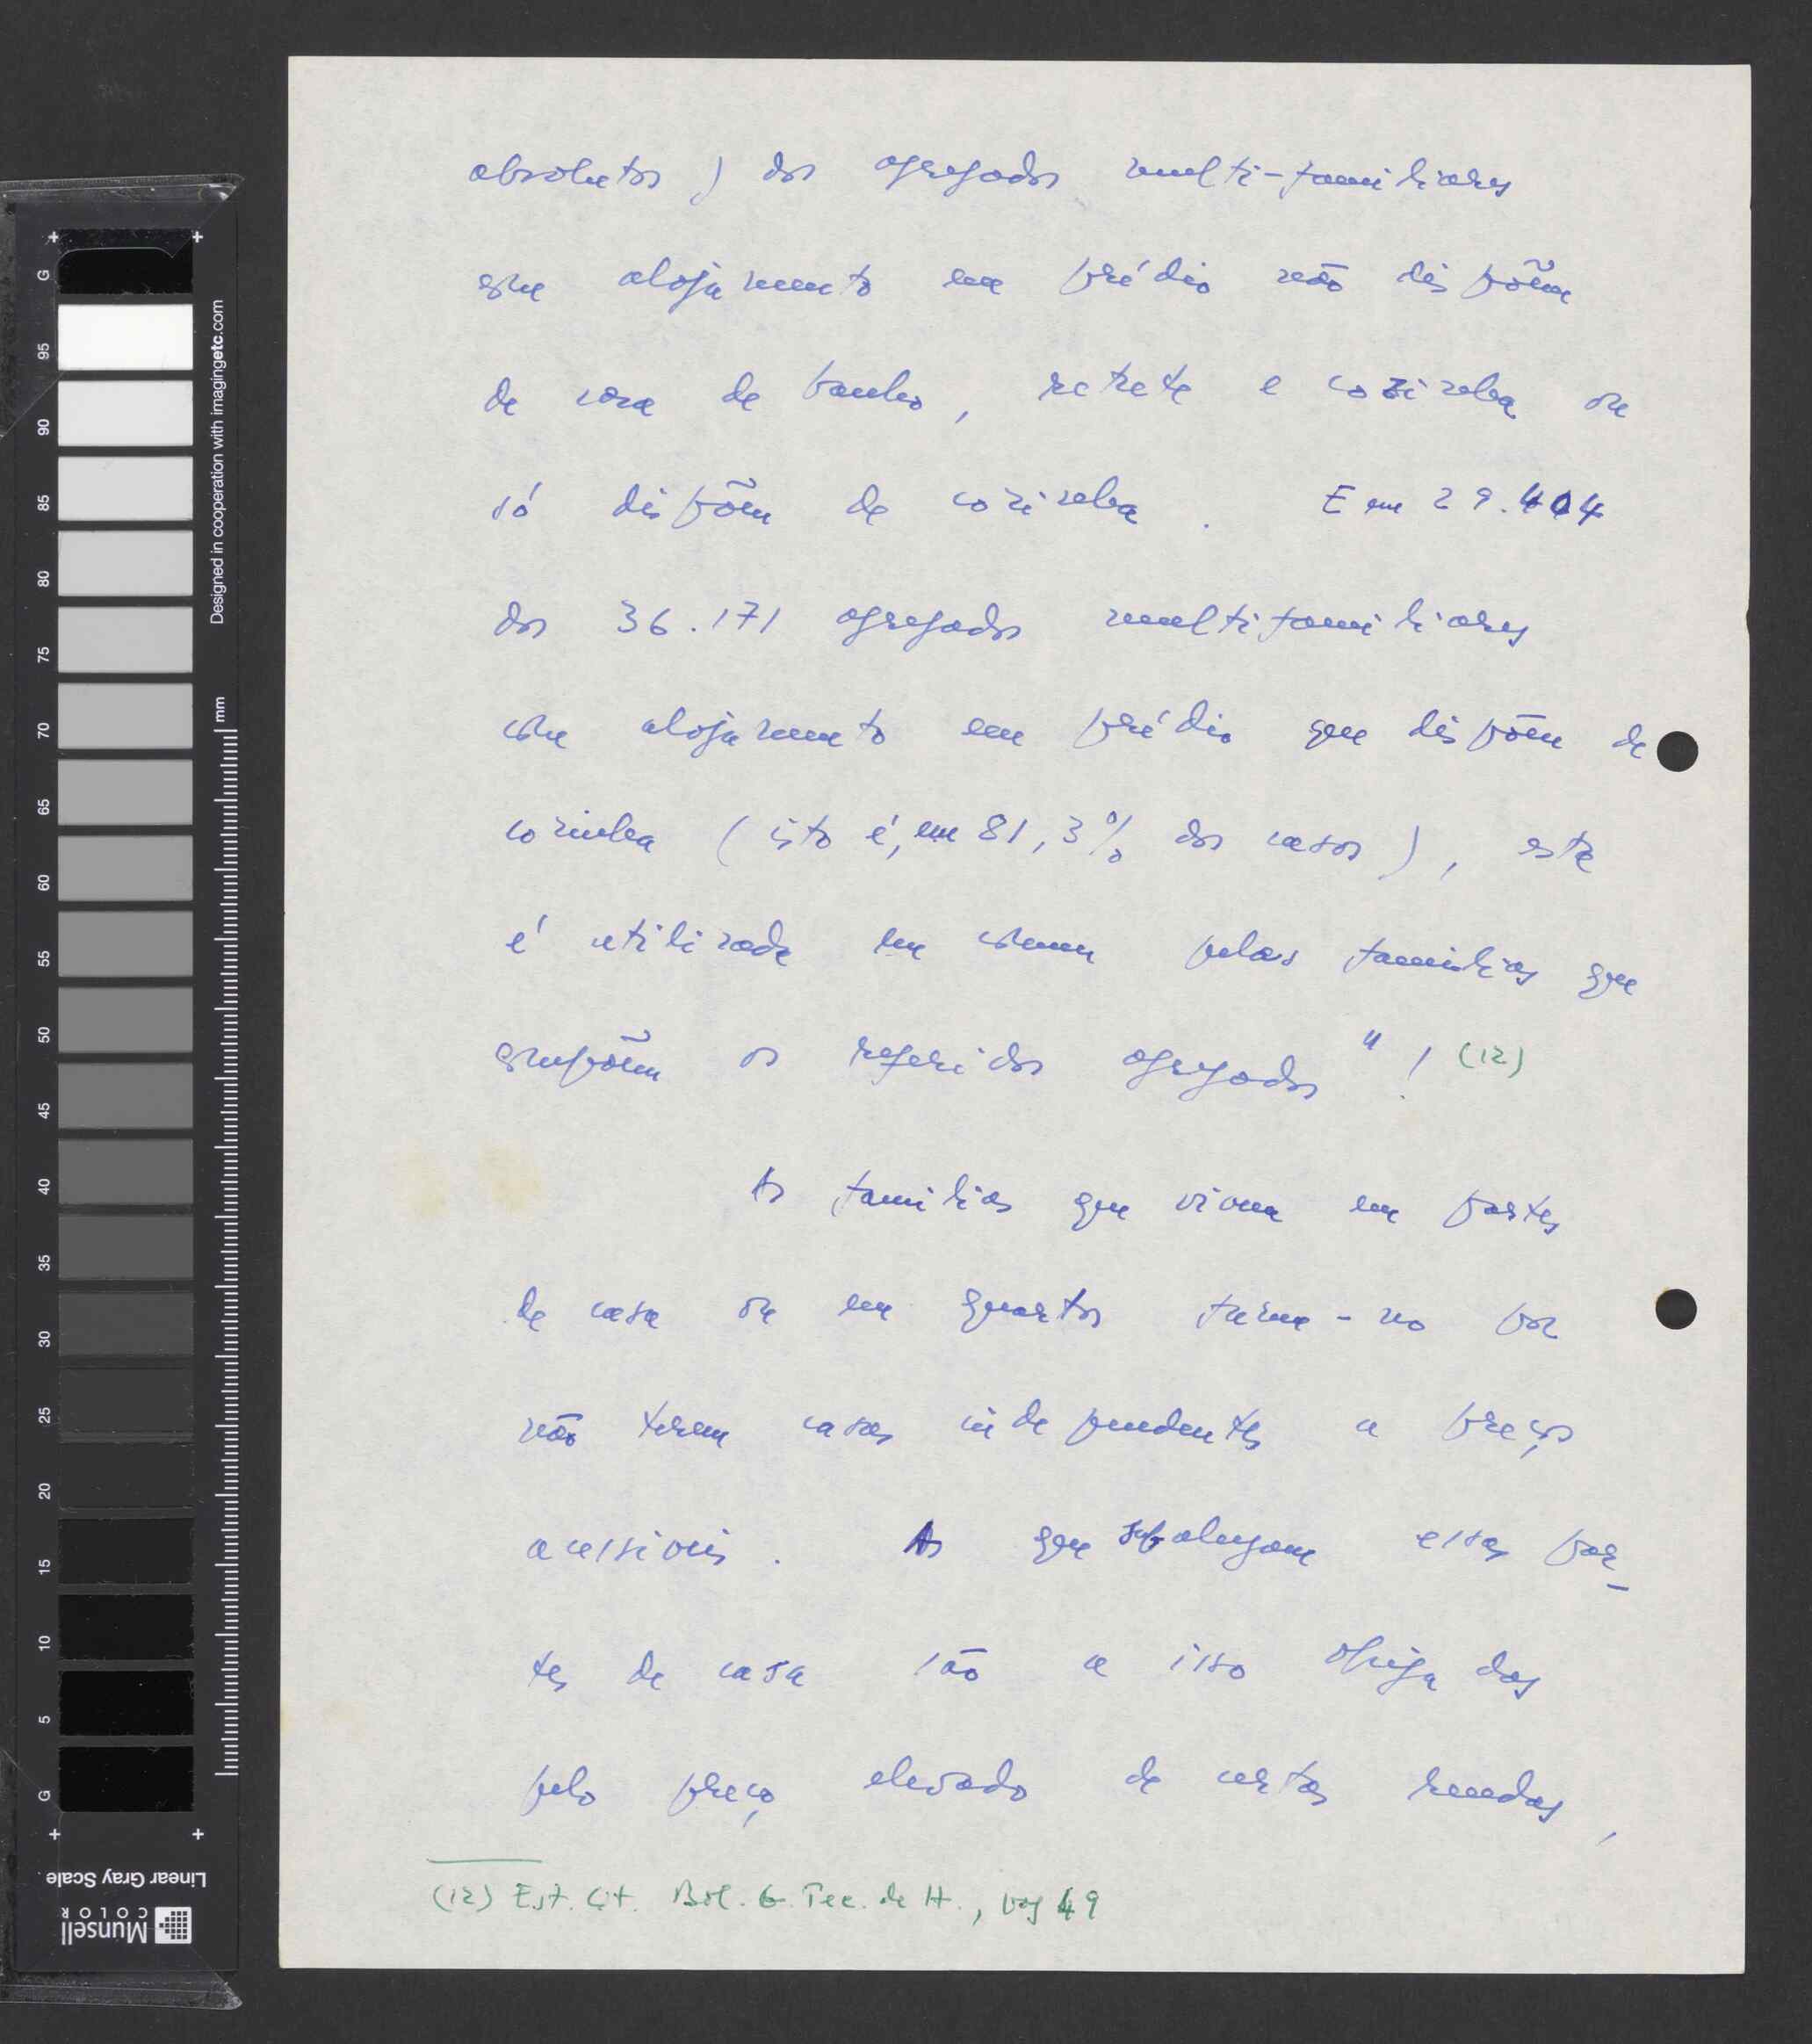 absolutos) dos agregados multi-familiares
com alojamento em prédio não dispõem
de casa de banho, retrete e cozinha ou
só dispõem de cozinha. E em 29.414
dos 36.171 agregados multifamiliares
com alojamento em prédio que dispõem de
cozinha (isto é, em 81,3% dos casos), esta
é utilizada em comum pelas familias que
compõem os referidos agregados"! (12)
As familias que vivem em partes
de casa ou em quartos fazem-no por
não terem casas independentes a preços
acessiveis. As que subalugam essas par-
tes de casa são a isso obrigadas
pelo preço elevado de certas rendas,
(12) Est. Cit. Bol. G. Tec. de H., pag 49
G
95
90
85
80
75
70
65
60
55
50
45
40
35
30
25
20
15
10
5
G
mm
Designed in cooperation with imagingetc.com
Linear Gray Scale
Munsell
COLOR